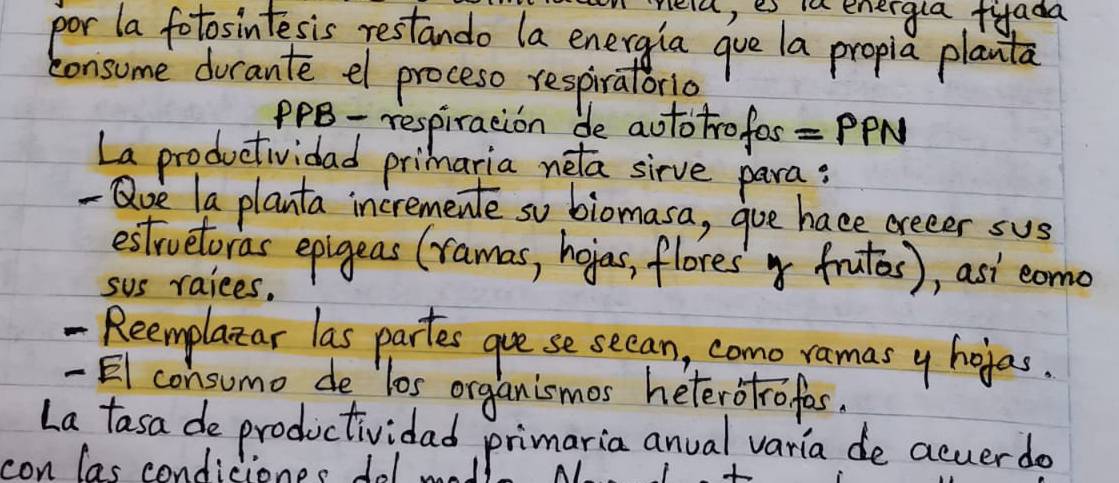 neta, es la energía fijada
por la fotosíntesis restando la energía que la propia planta
consume durante el proceso respiratorio
PPB - respiración de autótrofos = PPN
La productividad primaria neta sirve para:
- Que la planta incremente su biomasa, que hace crecer sus
estructuras epigeas (ramas, hojas, flores y frutos), así como
sus raíces.
- Reemplazar las partes que se secan, como ramas y hojas.
- El consumo de los organismos heterótrofos.
La tasa de productividad primaria anual varía de acuerdo
con las condiciones del